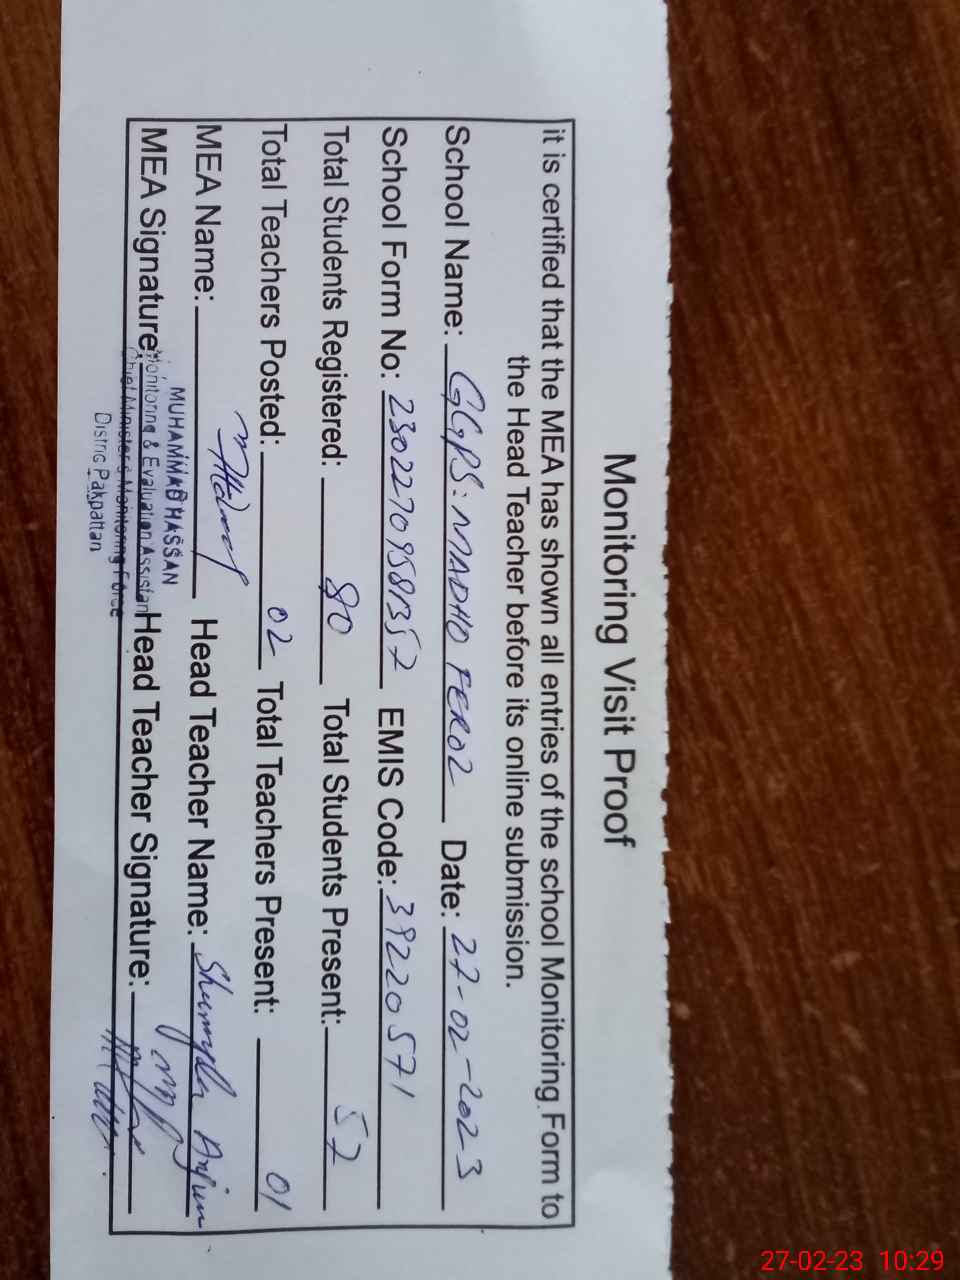 Monitoring Visit Proof
it is certified that the MEA has shown all entries of the school Monitoring Form to
the Head Teacher before its online submission.
School Name: GGPS: MADHO FEROZ Date: 27-02-2023
School Form No: 230227095881357 EMIS Code: 39220571
Total Students Registered: 80 Total Students Present: 57
Total Teachers Posted: 02 Total Teachers Present: 01
MEA Name: Head Teacher Name: Shumyla Anjum
MUHAMMAD HASSAN
MEA Signature: Head Teacher Signature:
Monitoring & Evaluation Assistant
Chief Minister's Monitoring Force
Distric Pakpattan
27-02-23 10:29